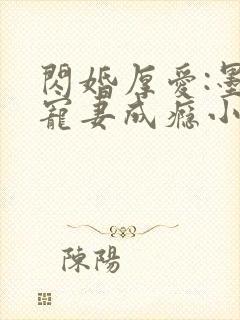 閃婚厚愛:墨
寵妻成癮小
陳陽